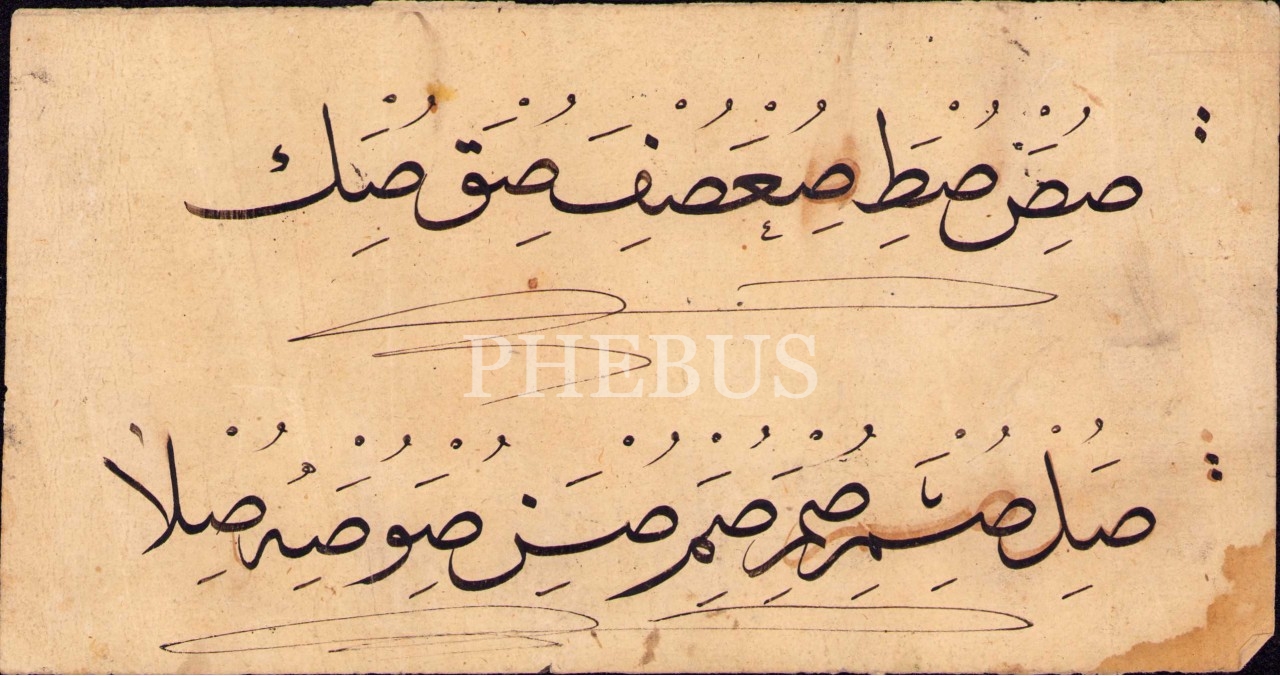 صص صط صع صف صق صك
PHEBUS
صل صم صم صم صن صو صه صلا